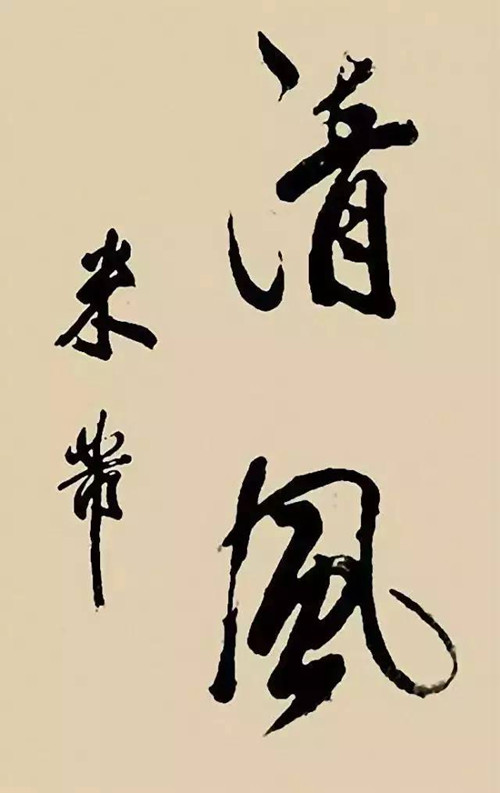 清風
米芾